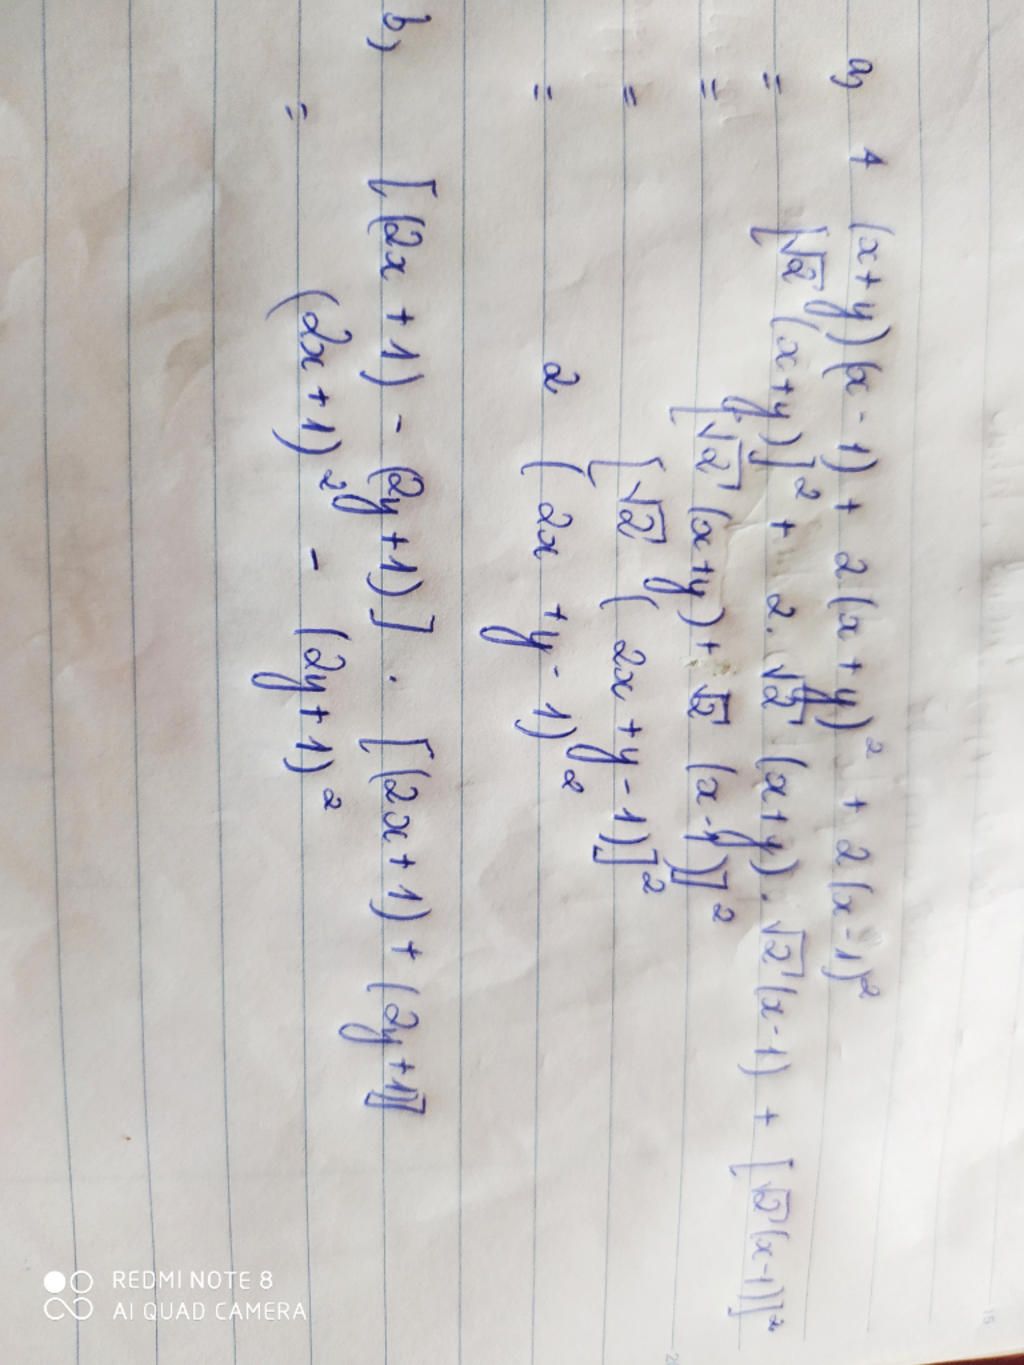 a, 4 (x+y)(x-1) + 2(x+y)² + 2(x-1)²
= [√2(x+y)]² + 2.√2(x+y).√2(x-1) + [√2(x-1)]²
= [√2(x+y) + √2(x-1)]²
= [√2(2x+y-1)]²
= 2(2x+y-1)²
b, [(2x+1) - (2y+1)] . [(2x+1) + (2y+1)]
= (2x+1)² - (2y+1)²
REDMI NOTE 8
AI QUAD CAMERA